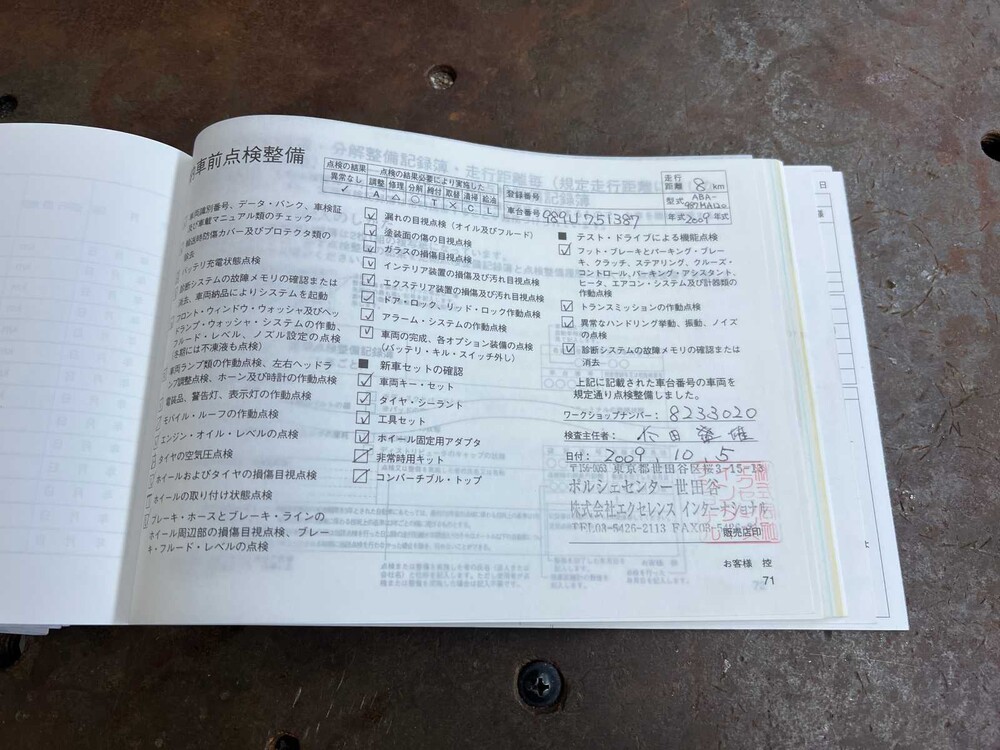 車前点検整備
点検の結果 点検の結果必要により実施した
異常なし 調整 修理 分解 締付 取替 清掃 給油
✓ A △ ○ T × C L
登録番号
車台番号
走行距離 8 km
型式 ABA-
年式 2009 年式
車両識別番号、データ・バンク、車検証
及び車載マニュアル類のチェック
輸送時防傷カバー及びプロテクタ類の
除去
バッテリ充電状態点検
診断システムの故障メモリの確認または
消去、車両納品によりシステムを起動
フロント・ウィンドウ・ウォッシャ及びヘッ
ドランプ・ウォッシャ・システムの作動、
フルード・レベル、ノズル設定の点検
(冬期には不凍液も点検)
車両ランプ類の作動点検、左右ヘッドラ
ンプ調整点検、ホーン及び時計の作動点検
電装品、警告灯、表示灯の作動点検
モバイル・ルーフの作動点検
エンジン・オイル・レベルの点検
タイヤの空気圧点検
ホイールおよびタイヤの損傷目視点検
ホイールの取り付け状態点検
ブレーキ・ホースとブレーキ・ラインの
ホイール周辺部の損傷目視点検、ブレー
キ・フルード・レベルの点検
漏れの目視点検(オイル及びフルード)
塗装面の傷の目視点検
ガラスの損傷目視点検
インテリア装置の損傷及び汚れ目視点検
エクステリア装置の損傷及び汚れ目視点検
ドア・ロック、リッド・ロック作動点検
アラーム・システムの作動点検
車両の完成、各オプション装備の点検
(バッテリ・キル・スイッチ外し)
■ 新車セットの確認
車両キー・セット
タイヤ・シーラント
工具セット
ホイール固定用アダプタ
非常時用キット
コンバーチブル・トップ
■ テスト・ドライブによる機能点検
フット・ブレーキとパーキング・ブレー
キ、クラッチ、ステアリング、クルーズ・
コントロール、パーキング・アシスタント、
ヒータ、エアコン・システム及び計器類の
作動点検
トランスミッションの作動点検
異常なハンドリング挙動、振動、ノイズ
の点検
診断システムの故障メモリの確認または
消去
上記に記載された車台番号の車両を
規定通り点検整備しました。
ワークショップナンバー: 8233020
検査主任者:
日付: 2009. 10. 5
〒156-0053 東京都世田谷区桜3-15-13
ポルシェセンター世田谷
株式会社エクセレンス インターナショナル
TEL.03-5426-2113
販売店印
お客様 控
71